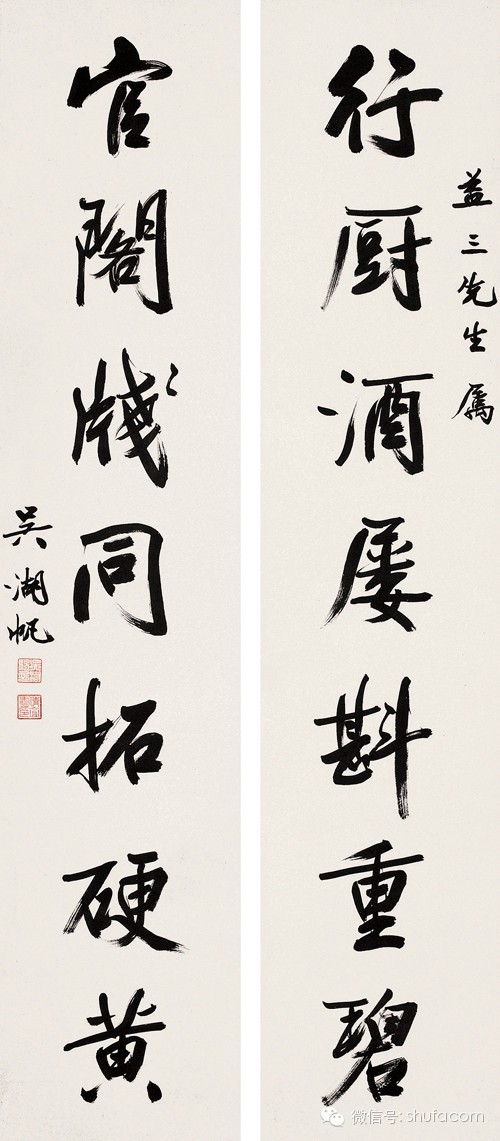 益三先生属
行厨酒屡斟重碧
官阁牋同拓硬黄
吴湖帆
微信号: shufacom